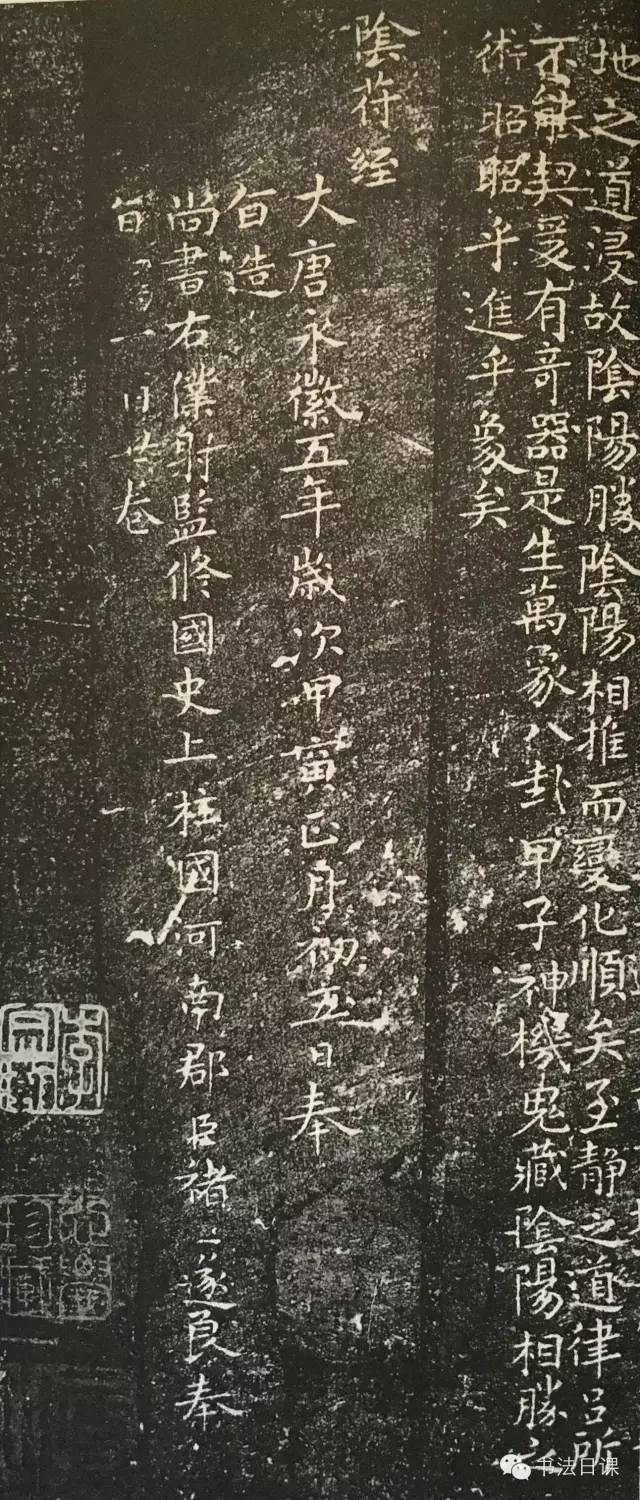 地之道浸故陰陽勝陰陽相推而變化順矣至静之道律吕所
不能契爰有奇器是生萬象八卦甲子神機鬼藏陰陽相勝之
術昭昭乎進乎象矣
陰符經
大唐永徽五年歲次甲寅正月初五日奉
旨造
尚書右僕射監修國史上柱國河南郡臣褚遂良奉
旨寫一百廿卷
书法日课